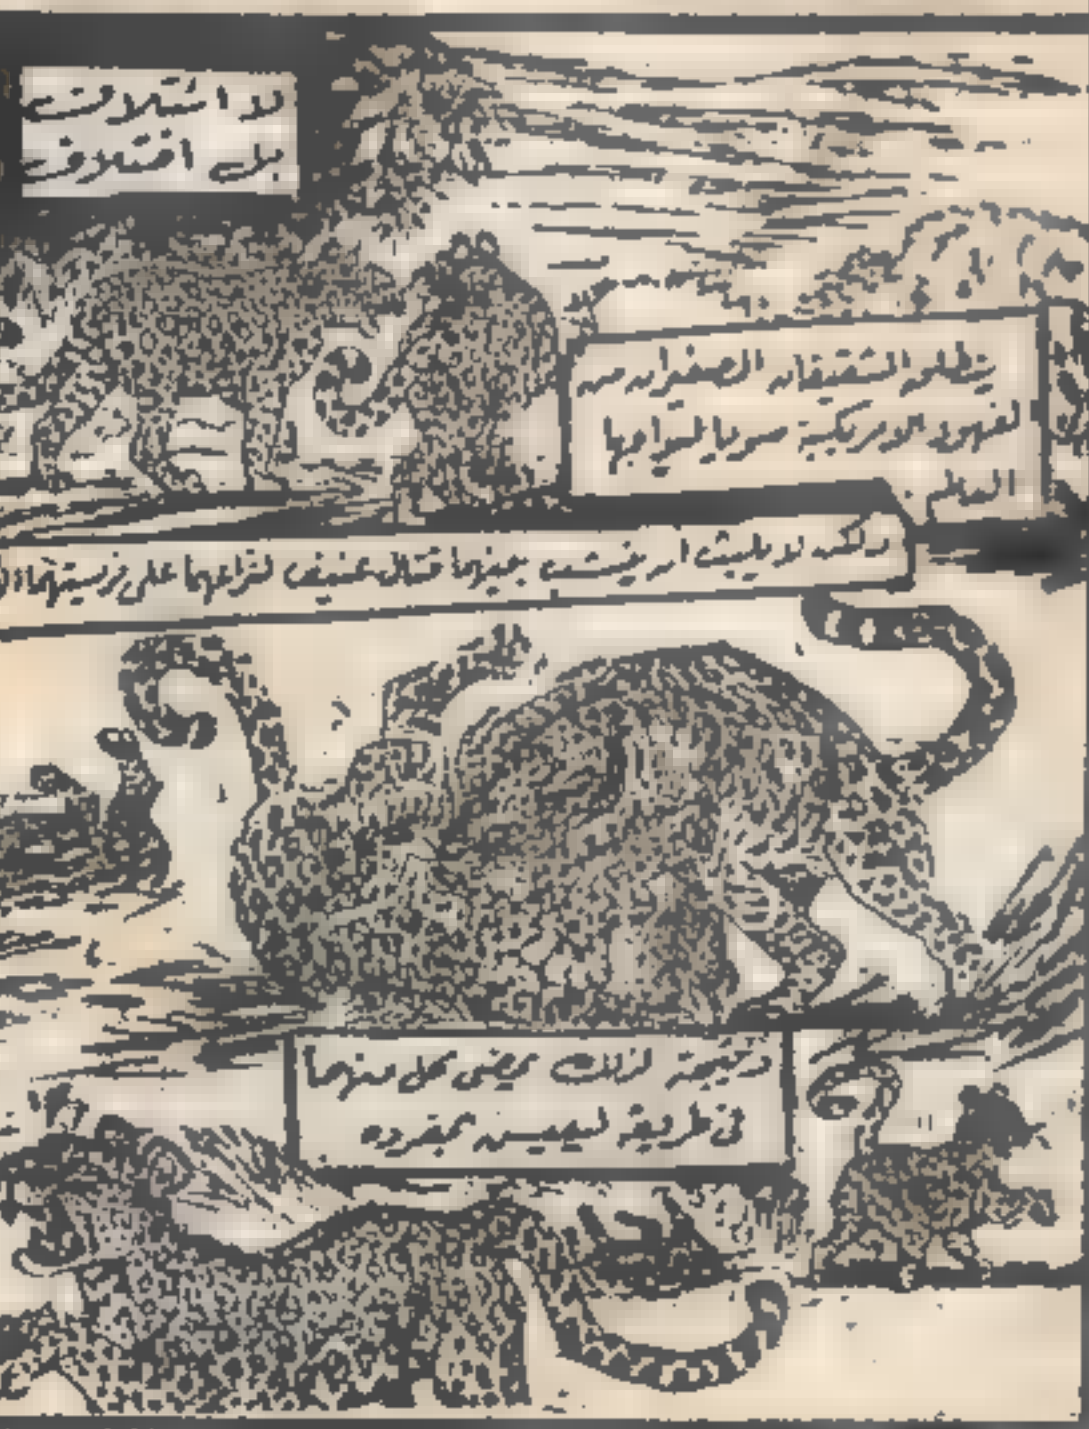 لا ائتلاف
بل اختلاف
ينطلق الشقيقان الصغيران من
الفهود الامريكية سويا ليواجها
العالم
ولكن لا يلبث ان ينشب بينهما قتال عنيف لنزاعهما على فريستهما
ونتيجة لذلك يمضى كل منهما
فى طريقه ليعيش بمفرده